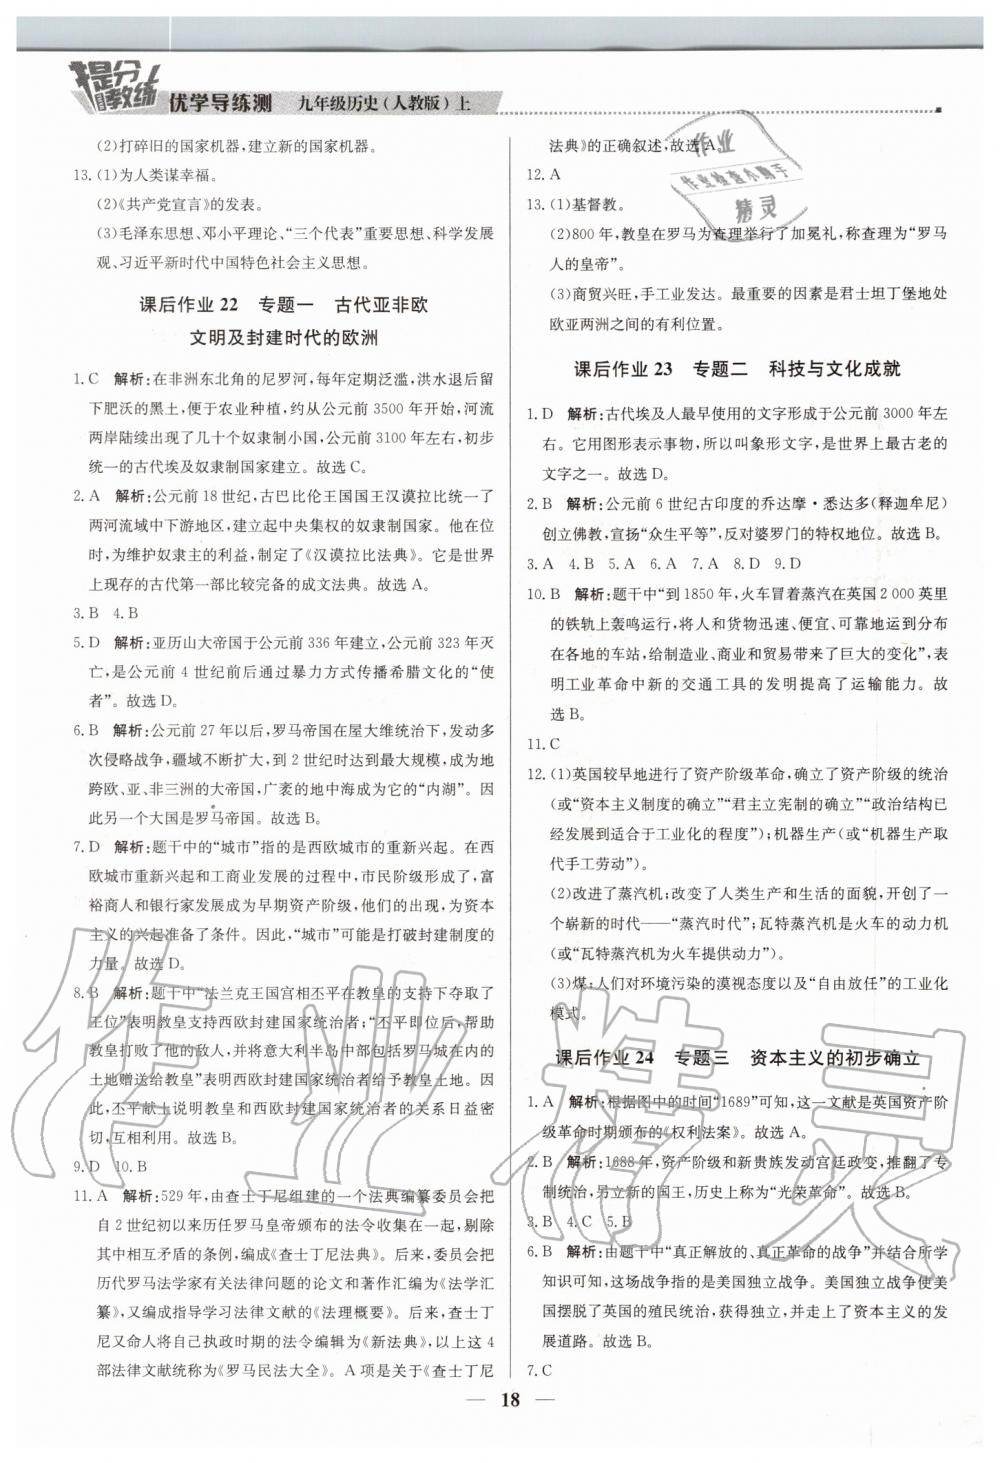 提分教练 优学导练测 九年级历史(人教版)上
(2)打碎旧的国家机器,建立新的国家机器。
13. (1)为人类谋幸福。
(2)《共产党宣言》的发表。
(3)毛泽东思想、邓小平理论、“三个代表”重要思想、科学发展
观、习近平新时代中国特色社会主义思想。
课后作业 22 专题一 古代亚非欧
文明及封建时代的欧洲
1. C 解析:在非洲东北角的尼罗河,每年定期泛滥,洪水退后留
下肥沃的黑土,便于农业种植,约从公元前 3500 年开始,河流
两岸陆续出现了几十个奴隶制小国,公元前 3100 年左右,初步
统一的古代埃及奴隶制国家建立。故选 C。
2. A 解析:公元前 18 世纪,古巴比伦王国国王汉谟拉比统一了
两河流域中下游地区,建立起中央集权的奴隶制国家。他在位
时,为维护奴隶主的利益,制定了《汉谟拉比法典》。它是世界
上现存的古代第一部比较完备的成文法典。故选 A。
3. B 4. B
5. D 解析:亚历山大帝国于公元前 336 年建立,公元前 323 年灭
亡,是公元前 4 世纪前后通过暴力方式传播希腊文化的“使
者”。故选 D。
6. B 解析:公元前 27 年以后,罗马帝国在屋大维统治下,发动多
次侵略战争,疆域不断扩大,到 2 世纪时达到最大规模,成为地
跨欧、亚、非三洲的大帝国,广袤的地中海成了它的“内湖”。因
此另一个大国是罗马帝国。故选 B。
7. D 解析:题干中的“城市”指的是西欧城市的重新兴起。在西
欧城市重新兴起和工商业发展的过程中,市民阶级形成了,富
裕商人和银行家发展成为早期资产阶级,他们的出现,为资本
主义的兴起准备了条件。因此,“城市”可能是打破封建制度的
力量。故选 D。
8. B 解析:题干中“法兰克王国宫相丕平在教皇的支持下夺取了
王位”表明教皇支持西欧封建国家统治者;“丕平即位后,帮助
教皇打败了他的敌人,并将意大利半岛中部包括罗马在内的
土地赠送给教皇”表明西欧封建国家统治者给予教皇土地。因
此,丕平献土说明教皇和西欧封建国家统治者的关系日益密
切,互相利用。故选 B。
9. D 10. B
11. A 解析:529 年,由查士丁尼组建的一个法典编纂委员会把
自 2 世纪初以来历任罗马皇帝颁布的法令收集在一起,剔除
其中相互矛盾的条例,编成《查士丁尼法典》。后来,委员会把
历代罗马法学家有关法律问题的论文和著作汇编为《法学汇
纂》,又编成指导学习法律文献的《法理概要》。后来,查士丁
尼又命人将自己执政时期的法令编辑为《新法典》,以上这 4
部法律文献统称为《罗马民法大全》。A 项是关于《查士丁尼
法典》的正确叙述,故选 A。
12. A
13. (1)基督教。
(2)800 年,教皇在罗马为查理举行了加冕礼,称查理为“罗马
人的皇帝”。
(3)商贸兴旺,手工业发达。最重要的因素是君士坦丁堡地处
欧亚两洲之间的有利位置。
课后作业 23 专题二 科技与文化成就
1. D 解析:古代埃及人最早使用的文字形成于公元前 3000 年左
右。它用图形表示事物,所以叫象形文字,是世界上最古老的
文字之一。故选 D。
2. B 解析:公元前 6 世纪古印度的乔达摩·悉达多(释迦牟尼)
创立佛教,宣扬“众生平等”,反对婆罗门的特权地位。故选 B。
3. A 4. B 5. A 6. A 7. A 8. D 9. D
10. B 解析:题干中“到 1850 年,火车冒着蒸汽在英国 2 000 英里
的铁轨上轰鸣运行,将人和货物迅速、便宜、可靠地运到分布
在各地的车站,给制造业、商业和贸易带来了巨大的变化”,表
明工业革命中新的交通工具的发明提高了运输能力。故
选 B。
11. C
12. (1)英国较早地进行了资产阶级革命,确立了资产阶级的统治
(或“资本主义制度的确立”“君主立宪制的确立”“政治结构已
经发展到适合于工业化的程度”);机器生产(或“机器生产取
代手工劳动”)。
(2)改进了蒸汽机;改变了人类生产和生活的面貌,开创了一
个崭新的时代——“蒸汽时代”;瓦特蒸汽机是火车的动力机
(或“瓦特蒸汽机为火车提供动力”)。
(3)煤;人们对环境污染的漠视态度以及“自由放任”的工业化
模式。
课后作业 24 专题三 资本主义的初步确立
1. A 解析:根据图中的时间“1689”可知,这一文献是英国资产阶
级革命时期颁布的《权利法案》。故选 A。
2. B 解析:1688 年,资产阶级和新贵族发动宫廷政变,推翻了专
制统治,另立新的国王,历史上称为“光荣革命”。故选 B。
3. B 4. C 5. B
6. B 解析:由题干中“真正解放的、真正革命的战争”并结合所学
知识可知,这场战争指的是美国独立战争。美国独立战争使美
国摆脱了英国的殖民统治,获得独立,并走上了资本主义的发
展道路。故选 B。
7. C
18
作业
作业检查小助手
精灵
作业精灵